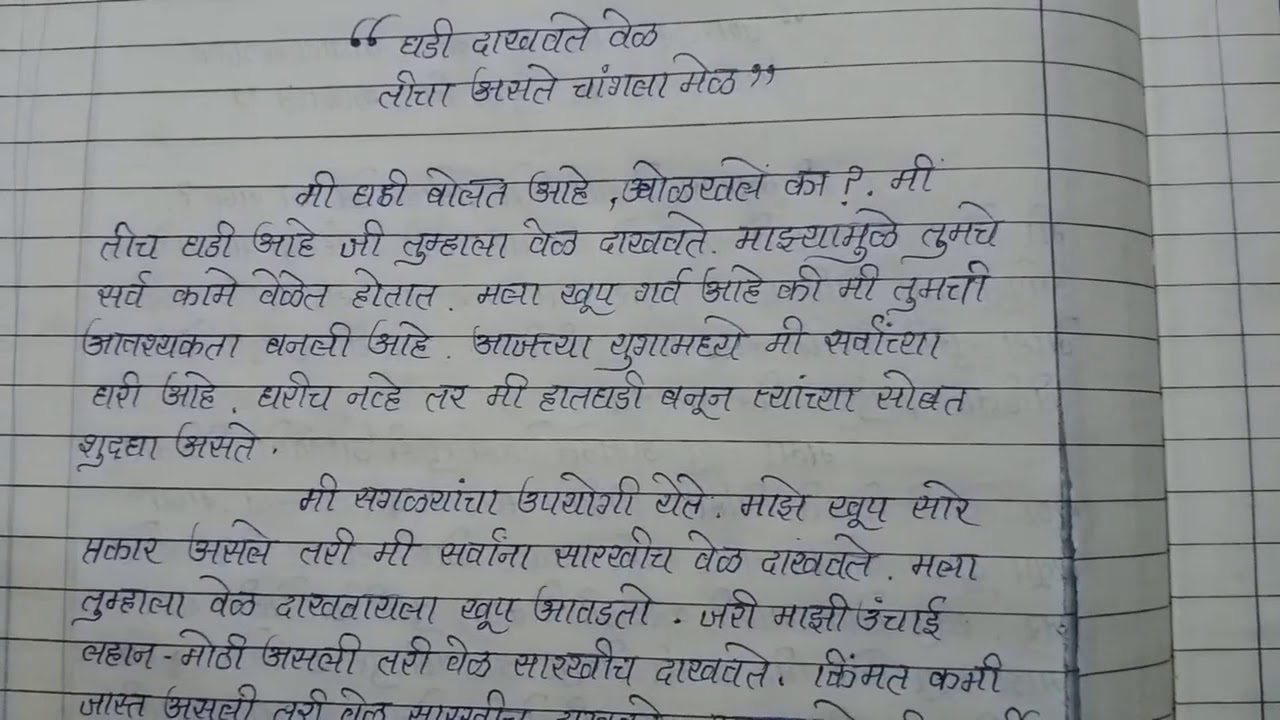 “ घडी दाखवते वेळ
तीचा असते चांगला मेळ ”
मी घडी बोलत आहे , ओळखले का ? . मी
तीच घडी आहे जी तुम्हाला वेळ दाखवते . माझ्यामुळे तुमचे
सर्व कामे वेळेत होतात . मला खूप गर्व आहे की मी तुमची
आवश्यकता बनली आहे . आजच्या युगामध्ये मी सर्वांच्या
घरी आहे . घरीच नव्हे तर मी हातघडी बनून त्यांच्या सोबत
शुद्धा असते .
मी सगळ्यांचा उपयोगी येते . माझे खूप सारे
प्रकार असले तरी मी सर्वांना सारखीच वेळ दाखवते . मला
तुम्हाला वेळ दाखवायला खूप आवडतो . जरी माझी उंचाई
लहान - मोठी असली तरी वेळ सारखीच दाखवते . किंमत कमी
जास्त असली तरी वेळ सारखीच